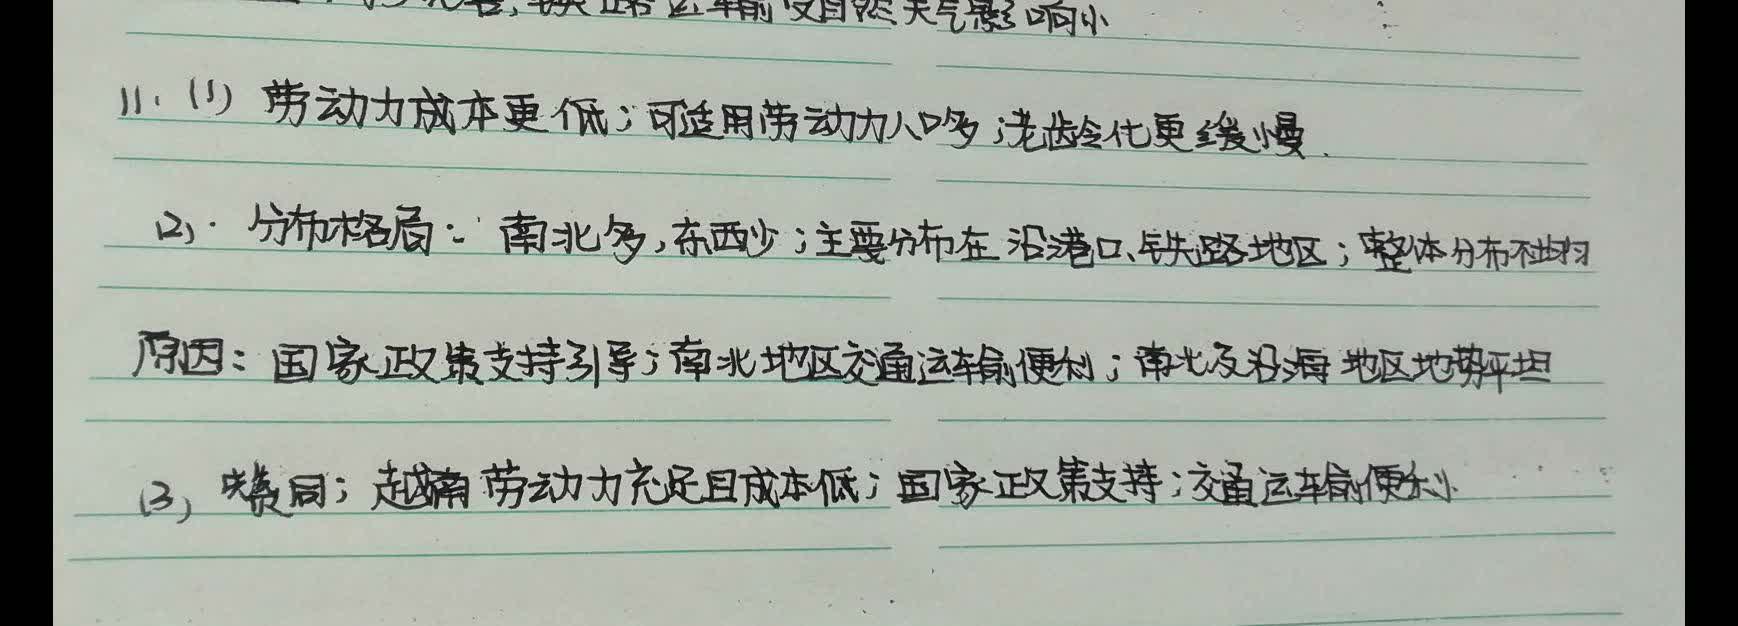 铁路运输受自然天气影响小
11. (1) 劳动力成本更低；可适用劳动力人口多；老龄化更缓慢.
(2). 分布格局：南北多，东西少；主要分布在沿港口、铁路地区；整体分布不均匀
原因：国家政策支持引导；南北地区交通运输便利；南北及沿海地区地势平坦
(3) 赞同；越南劳动力充足且成本低；国家政策支持；交通运输便利